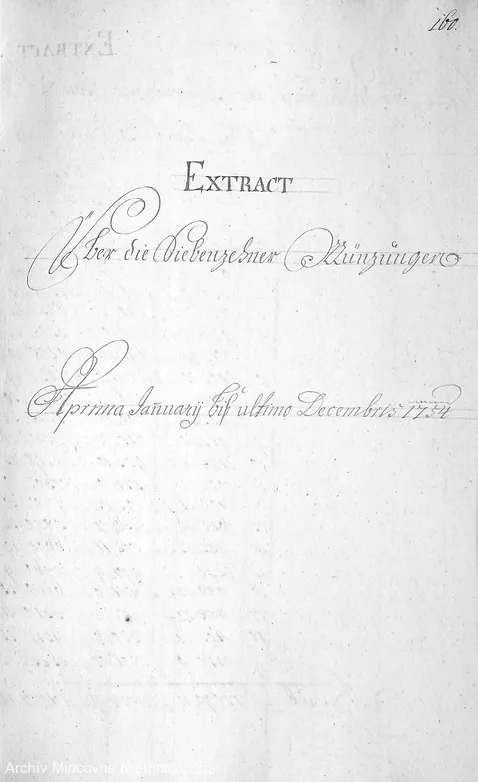 160.
EXTRACT
Über die Siebenzehner Münzungen
A prima Januarij biß ultimo Decembris 1754
Archív Mincovne Kremnica, š.p.